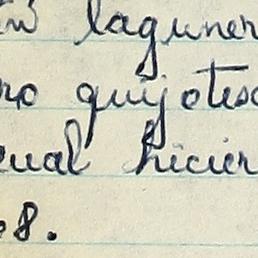 laguner
ro quijotesc
cual hicier
08.